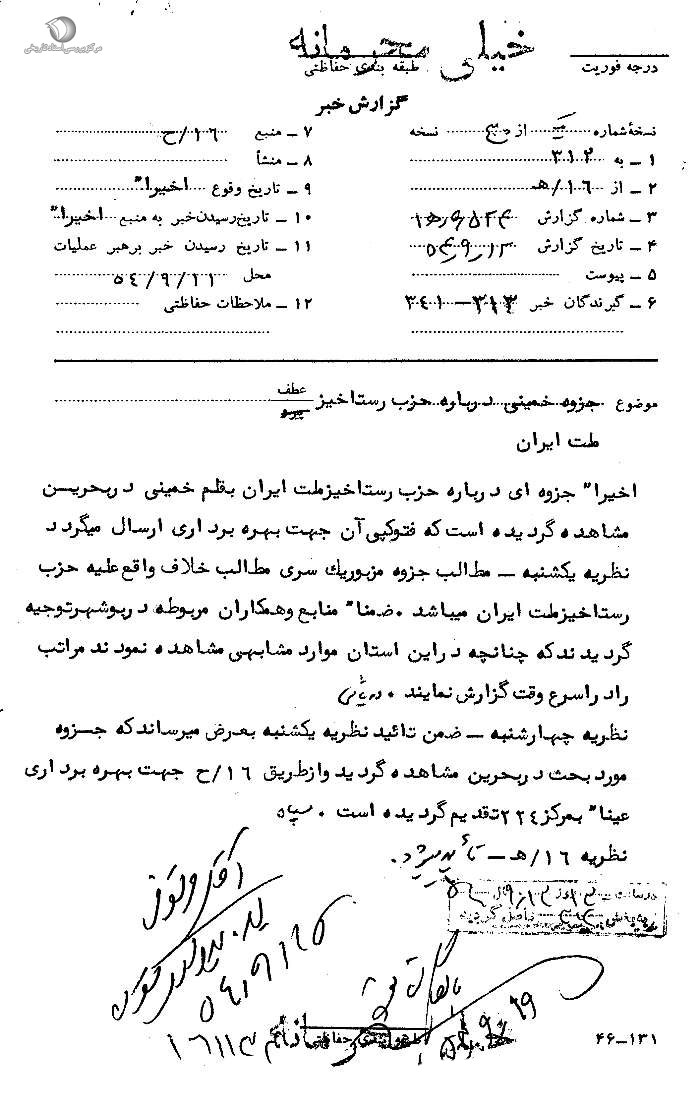 مرکز بررسی اسناد تاریخی
خیلی محرمانه
درجه فوریت
طبقه بندی حفاظتی
گزارش خبر
نسخهٔ شماره از نسخه
۱ ـ به ۳۱۲
۲ ـ از ۱۶/هـ
۳ ـ شماره گزارش
۴ ـ تاریخ گزارش
۵ ـ پیوست
۶ ـ گیرندگان خبر ۳۱۲ ـ ۳۴۱
۷ ـ منبع ۱۶/ح
۸ ـ منشأ
۹ ـ تاریخ وقوع اخیرا"
۱۰ ـ تاریخ رسیدن خبر به منبع اخیرا"
۱۱ ـ تاریخ رسیدن خبر برهبر عملیات
محل ۵٤/۹/۱۱
۱۲ ـ ملاحظات حفاظتی
موضوع جزوه خمینی درباره حزب رستاخیز عطف
پیرو
ملت ایران
اخیرا" جزوه ای درباره حزب رستاخیزملت ایران بقلم خمینی دربحرین
مشاهده گردیده است که فتوکپی آن جهت بهره برداری ارسال میگردد
نظریه یکشنبه ـ مطالب جزوه مزبوریك سری مطالب خلاف واقع علیه حزب
رستاخیزملت ایران میباشد ۰ ضمنا" منابع وهمکاران مربوطه دربوشهرتوجیه
گردیدند که چنانچه دراین استان موارد مشابهی مشاهده نمودند مراتب
راد راسرع وقت گزارش نمایند ۰
نظریه چهارشنبه ـ ضمن تائید نظریه یکشنبه بعرض میرساند که جزوه
مورد بحث دربحرین مشاهده گردید وازطریق ۱۶/ح جهت بهره برداری
عینا" بمرکز ۲۲٤ تقدیم گردیده است ۰ سپاه
نظریه ۱۶/هـ ـ تأیید میشود.
طبقه بندی حفاظتی
۴۶ـ۱۳۱